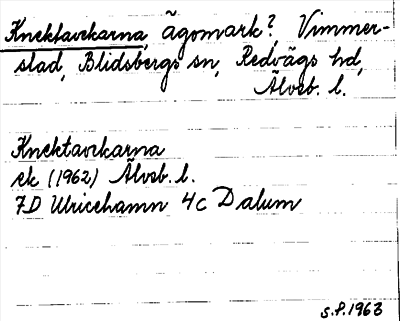 Knektavikarna, ägomark? Vimmer-
stad, Blidsbergs sn, Redvägs hd,
Älvsb. l.
Knektavikarna
ek (1962) Älvsb. l.
7D Ulricehamn 4c Dalum
s.f. 1963